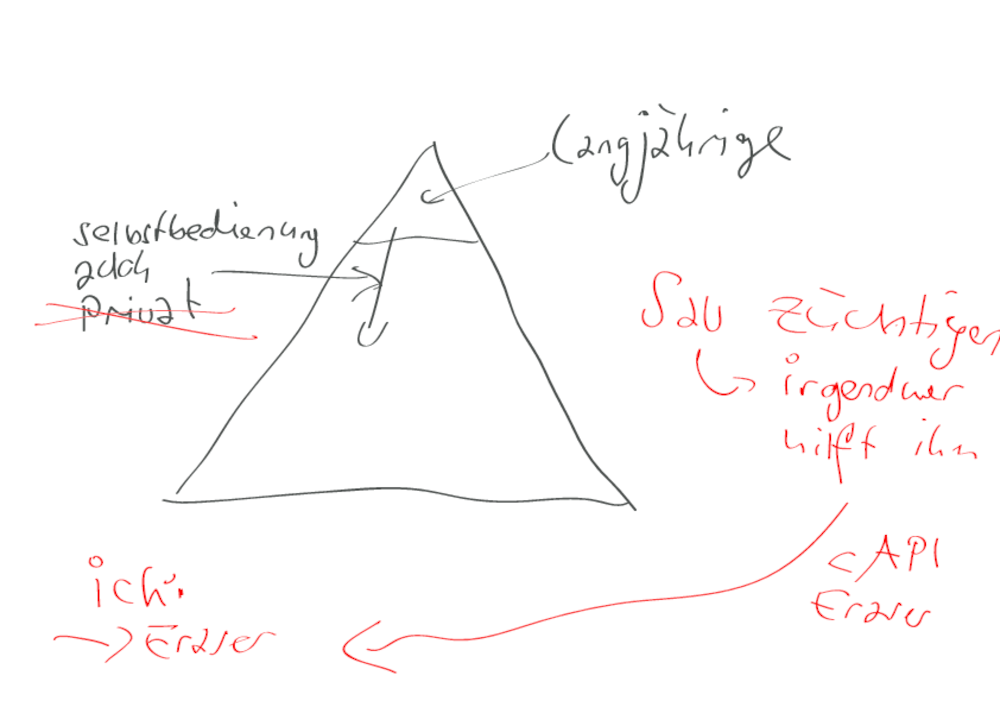 langjährige
selbstbedienung
auch
privat
Sau züchtigen
irgendwer
hilft ihm
< API
Eraser
ich:
→ Eraser